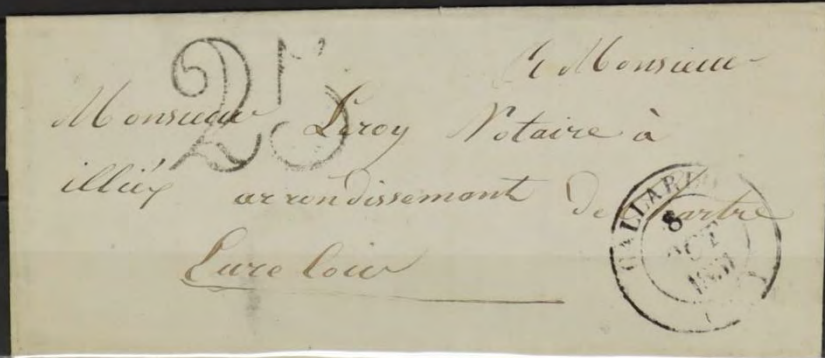 A Monsieur
Monsieur Leroy Notaire à
illiéz
arrondissement de Chartre
Eure Loir
25
8
OCT